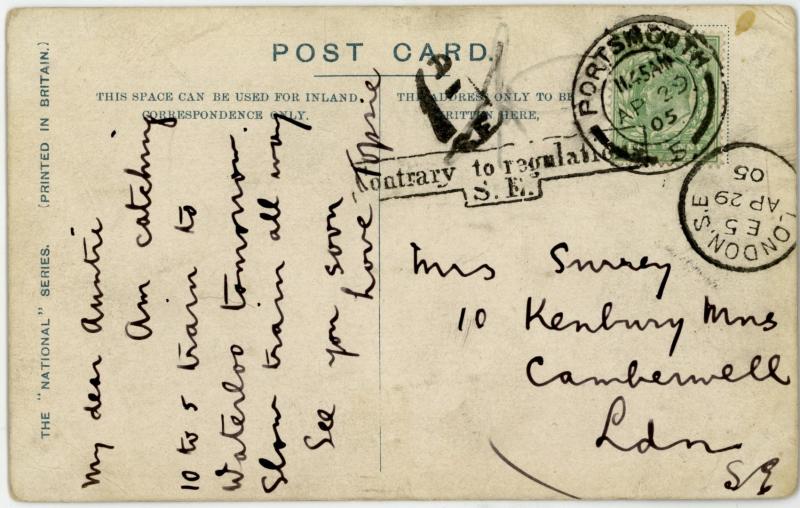 POST CARD.
THIS SPACE CAN BE USED FOR INLAND
CORRESPONDENCE ONLY.
THE ADDRESS ONLY TO BE
WRITTEN HERE,
THE "NATIONAL" SERIES. (PRINTED IN BRITAIN.)
My dear Auntie
Am catching
10 to 5 train to
Waterloo tomorrow.
Slow train all way
See you soon
Love Topsie
Contrary to regulations
S.E.
PORTSMOUTH
11.45AM
AP 29
05
5
LONDON. S.E
E5
AP 29
05
Mrs Surrey
10 Kenbury Mns
Camberwell
Ldn
SE